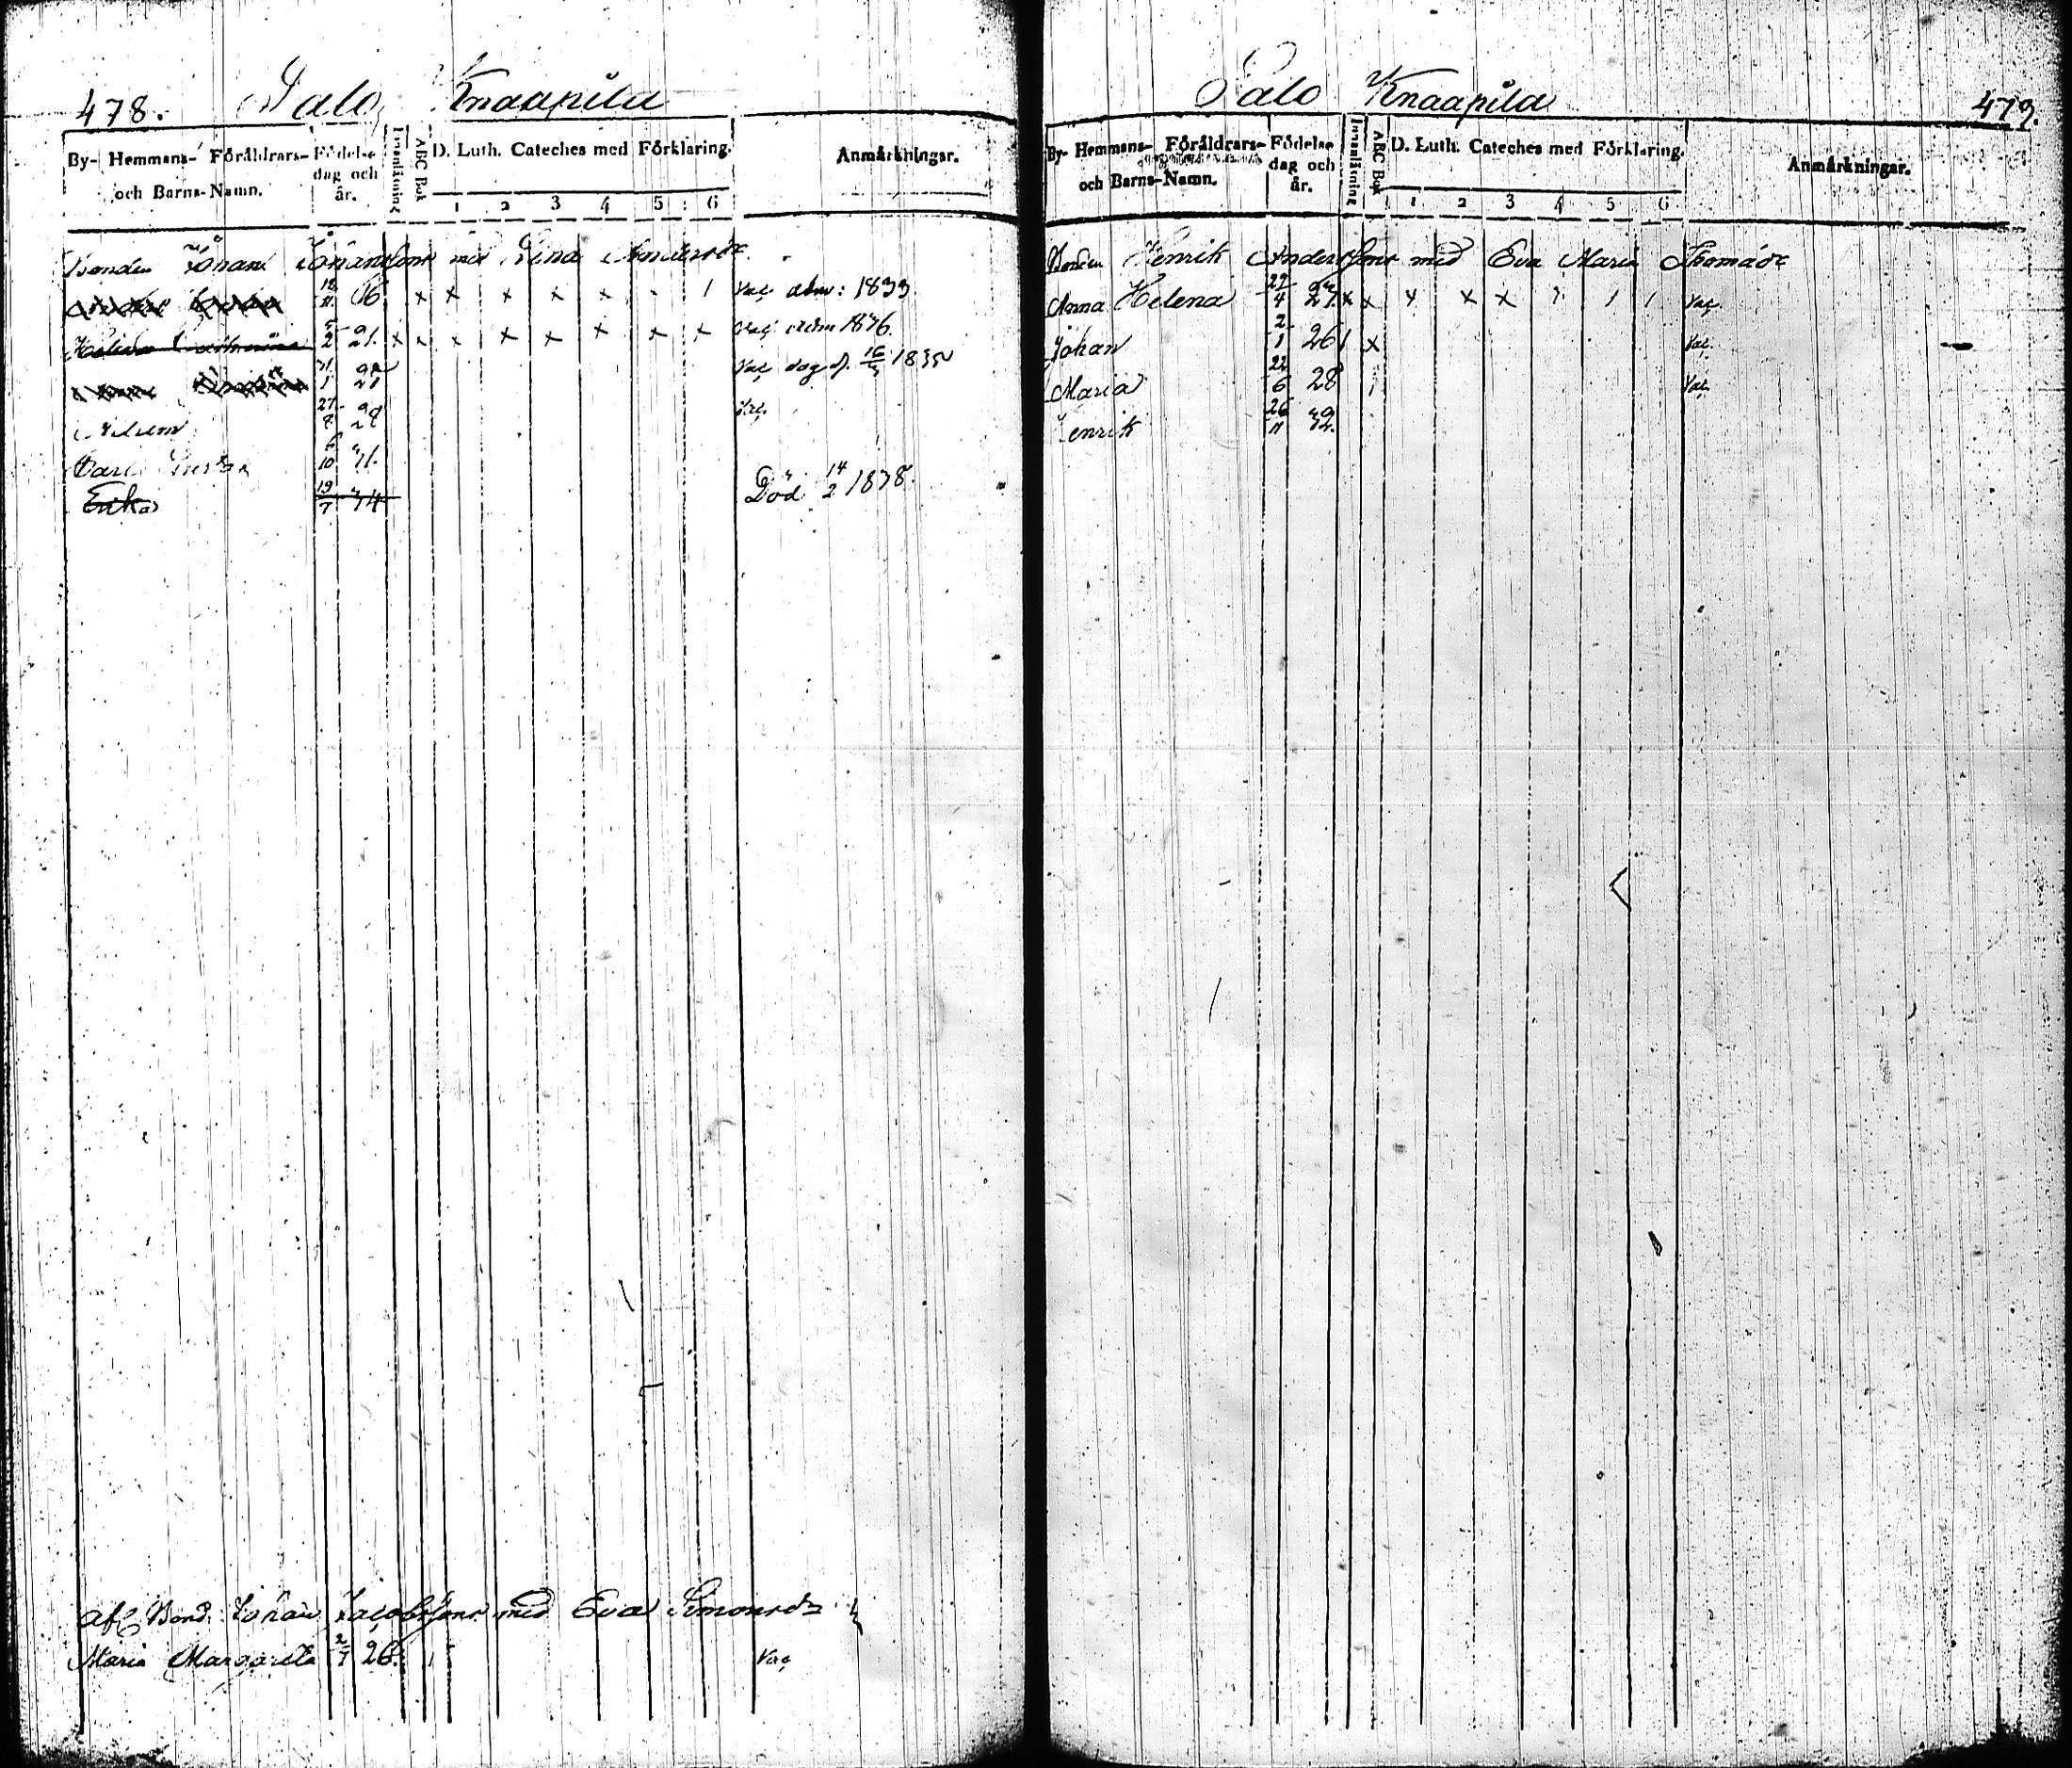 478. Palo Knaapila
By- Hemmans- Föräldrars- och Barns-Namn. Födelse dag och år. Innanläsning ABC Bok D. Luth. Cateches med Förklaring. 1 2 3 4 5 6 Anmärkningar.
Bonden Johan Johansson med Lina Andersdr
12/11 16 x x x x x - 1 Vac. 1833
5/2 21. x x x x x x x x Vac. 1836.
21/1 Vac. 16/ 1835
27/8 28 Vac.
Carl Gustaf 6/10 31.
Erik 19/7 34 Död 14/2 1838.
afl Bond. Johan Jacobsson med Eva Simonsdr
Maria Margareta 2/7 26. 1 Vac
Palo Knaapila 479.
By- Hemmans- Föräldrars- och Barns-Namn. Födelse dag och år. Innanläsning ABC Bok D. Luth. Cateches med Förklaring. 1 2 3 4 5 6 Anmärkningar.
Bonden Henrik Andersson med Eva Maria Thomasdr
Anna Helena 27/4 23 x x x x x 1 1 1 Vac.
Johan 2/1 26 1 x Vac.
Maria 22/6 28 1 Vac.
Henrik 26/11 32.